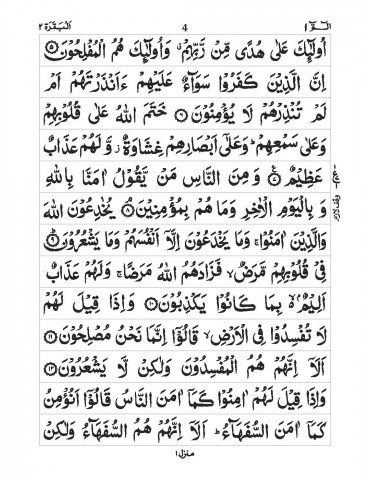 الٓمّٓ ١ 4 اَلْبَقَرَة ٢
اُولٰٓئِكَ عَلٰى هُدًى مِّنْ رَّبِّهِمْ ۙ وَاُولٰٓئِكَ هُمُ الْمُفْلِحُوْنَ ۝٥
اِنَّ الَّذِيْنَ كَفَرُوْا سَوَآءٌ عَلَيْهِمْ ءَاَنْذَرْتَهُمْ اَمْ
لَمْ تُنْذِرْهُمْ لَا يُؤْمِنُوْنَ ۝٦ خَتَمَ اللّٰهُ عَلٰى قُلُوْبِهِمْ
وَعَلٰى سَمْعِهِمْ ؕ وَعَلٰٓى اَبْصَارِهِمْ غِشَاوَةٌ ؗ وَّ لَهُمْ عَذَابٌ
عَظِيْمٌ ۝٧ وَ مِنَ النَّاسِ مَنْ يَّقُوْلُ اٰمَنَّا بِاللّٰهِ
وَ بِالْيَوْمِ الْاٰخِرِ وَمَا هُمْ بِمُؤْمِنِيْنَ ۝٨ يُخٰدِعُوْنَ اللّٰهَ
وَالَّذِيْنَ اٰمَنُوْا ۚ وَمَا يَخْدَعُوْنَ اِلَّاۤ اَنْفُسَهُمْ وَمَا يَشْعُرُوْنَ ۝٩
فِىْ قُلُوْبِهِمْ مَّرَضٌ ۙ فَزَادَهُمُ اللّٰهُ مَرَضًا ۚ وَلَهُمْ عَذَابٌ
اَلِيْمٌۢ ۙ بِمَا كَانُوْا يَكْذِبُوْنَ ۝١٠ وَاِذَا قِيْلَ لَهُمْ
لَا تُفْسِدُوْا فِى الْاَرْضِ ۙ قَالُوْٓا اِنَّمَا نَحْنُ مُصْلِحُوْنَ ۝١١
اَلَآ اِنَّهُمْ هُمُ الْمُفْسِدُوْنَ وَلٰكِنْ لَّا يَشْعُرُوْنَ ۝١٢
وَاِذَا قِيْلَ لَهُمْ اٰمِنُوْا كَمَآ اٰمَنَ النَّاسُ قَالُوْٓا اَنُؤْمِنُ
كَمَآ اٰمَنَ السُّفَهَآءُ ؕ اَلَآ اِنَّهُمْ هُمُ السُّفَهَآءُ وَلٰكِنْ
منزل ١